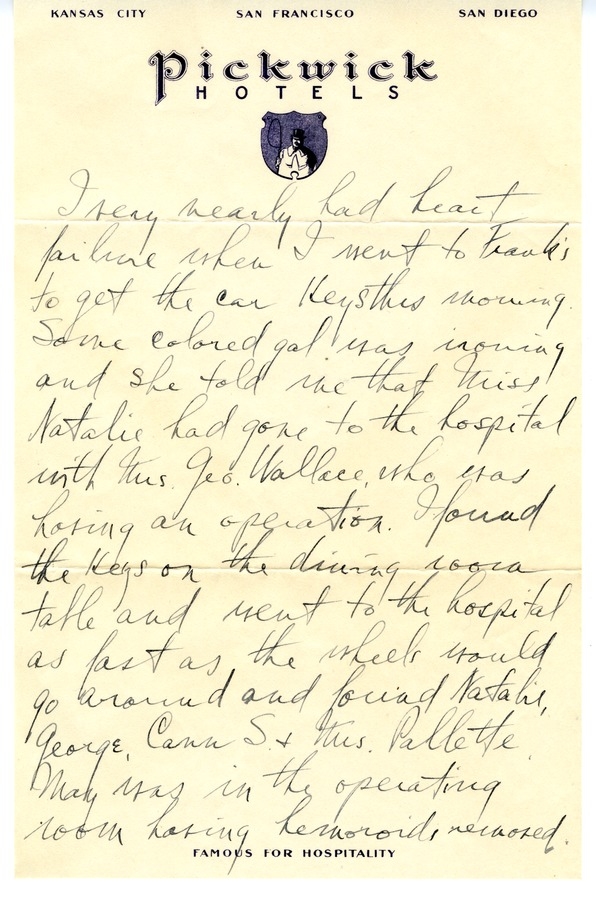 KANSAS CITY SAN FRANCISCO SAN DIEGO
Pickwick
HOTELS
I very nearly had heart
failure when I went to Frank's
to get the car Keys this morning.
Some colored gal was ironing
and she told me that Miss
Natalie had gone to the hospital
with Mrs. Geo. Wallace, who was
having an operation. I found
the keys on the dining room
table and went to the hospital
as fast as the wheels would
go around and found Natalie,
George, Cann S. & Mrs. Pallette.
May was in the operating
room having hemoroids removed.
FAMOUS FOR HOSPITALITY